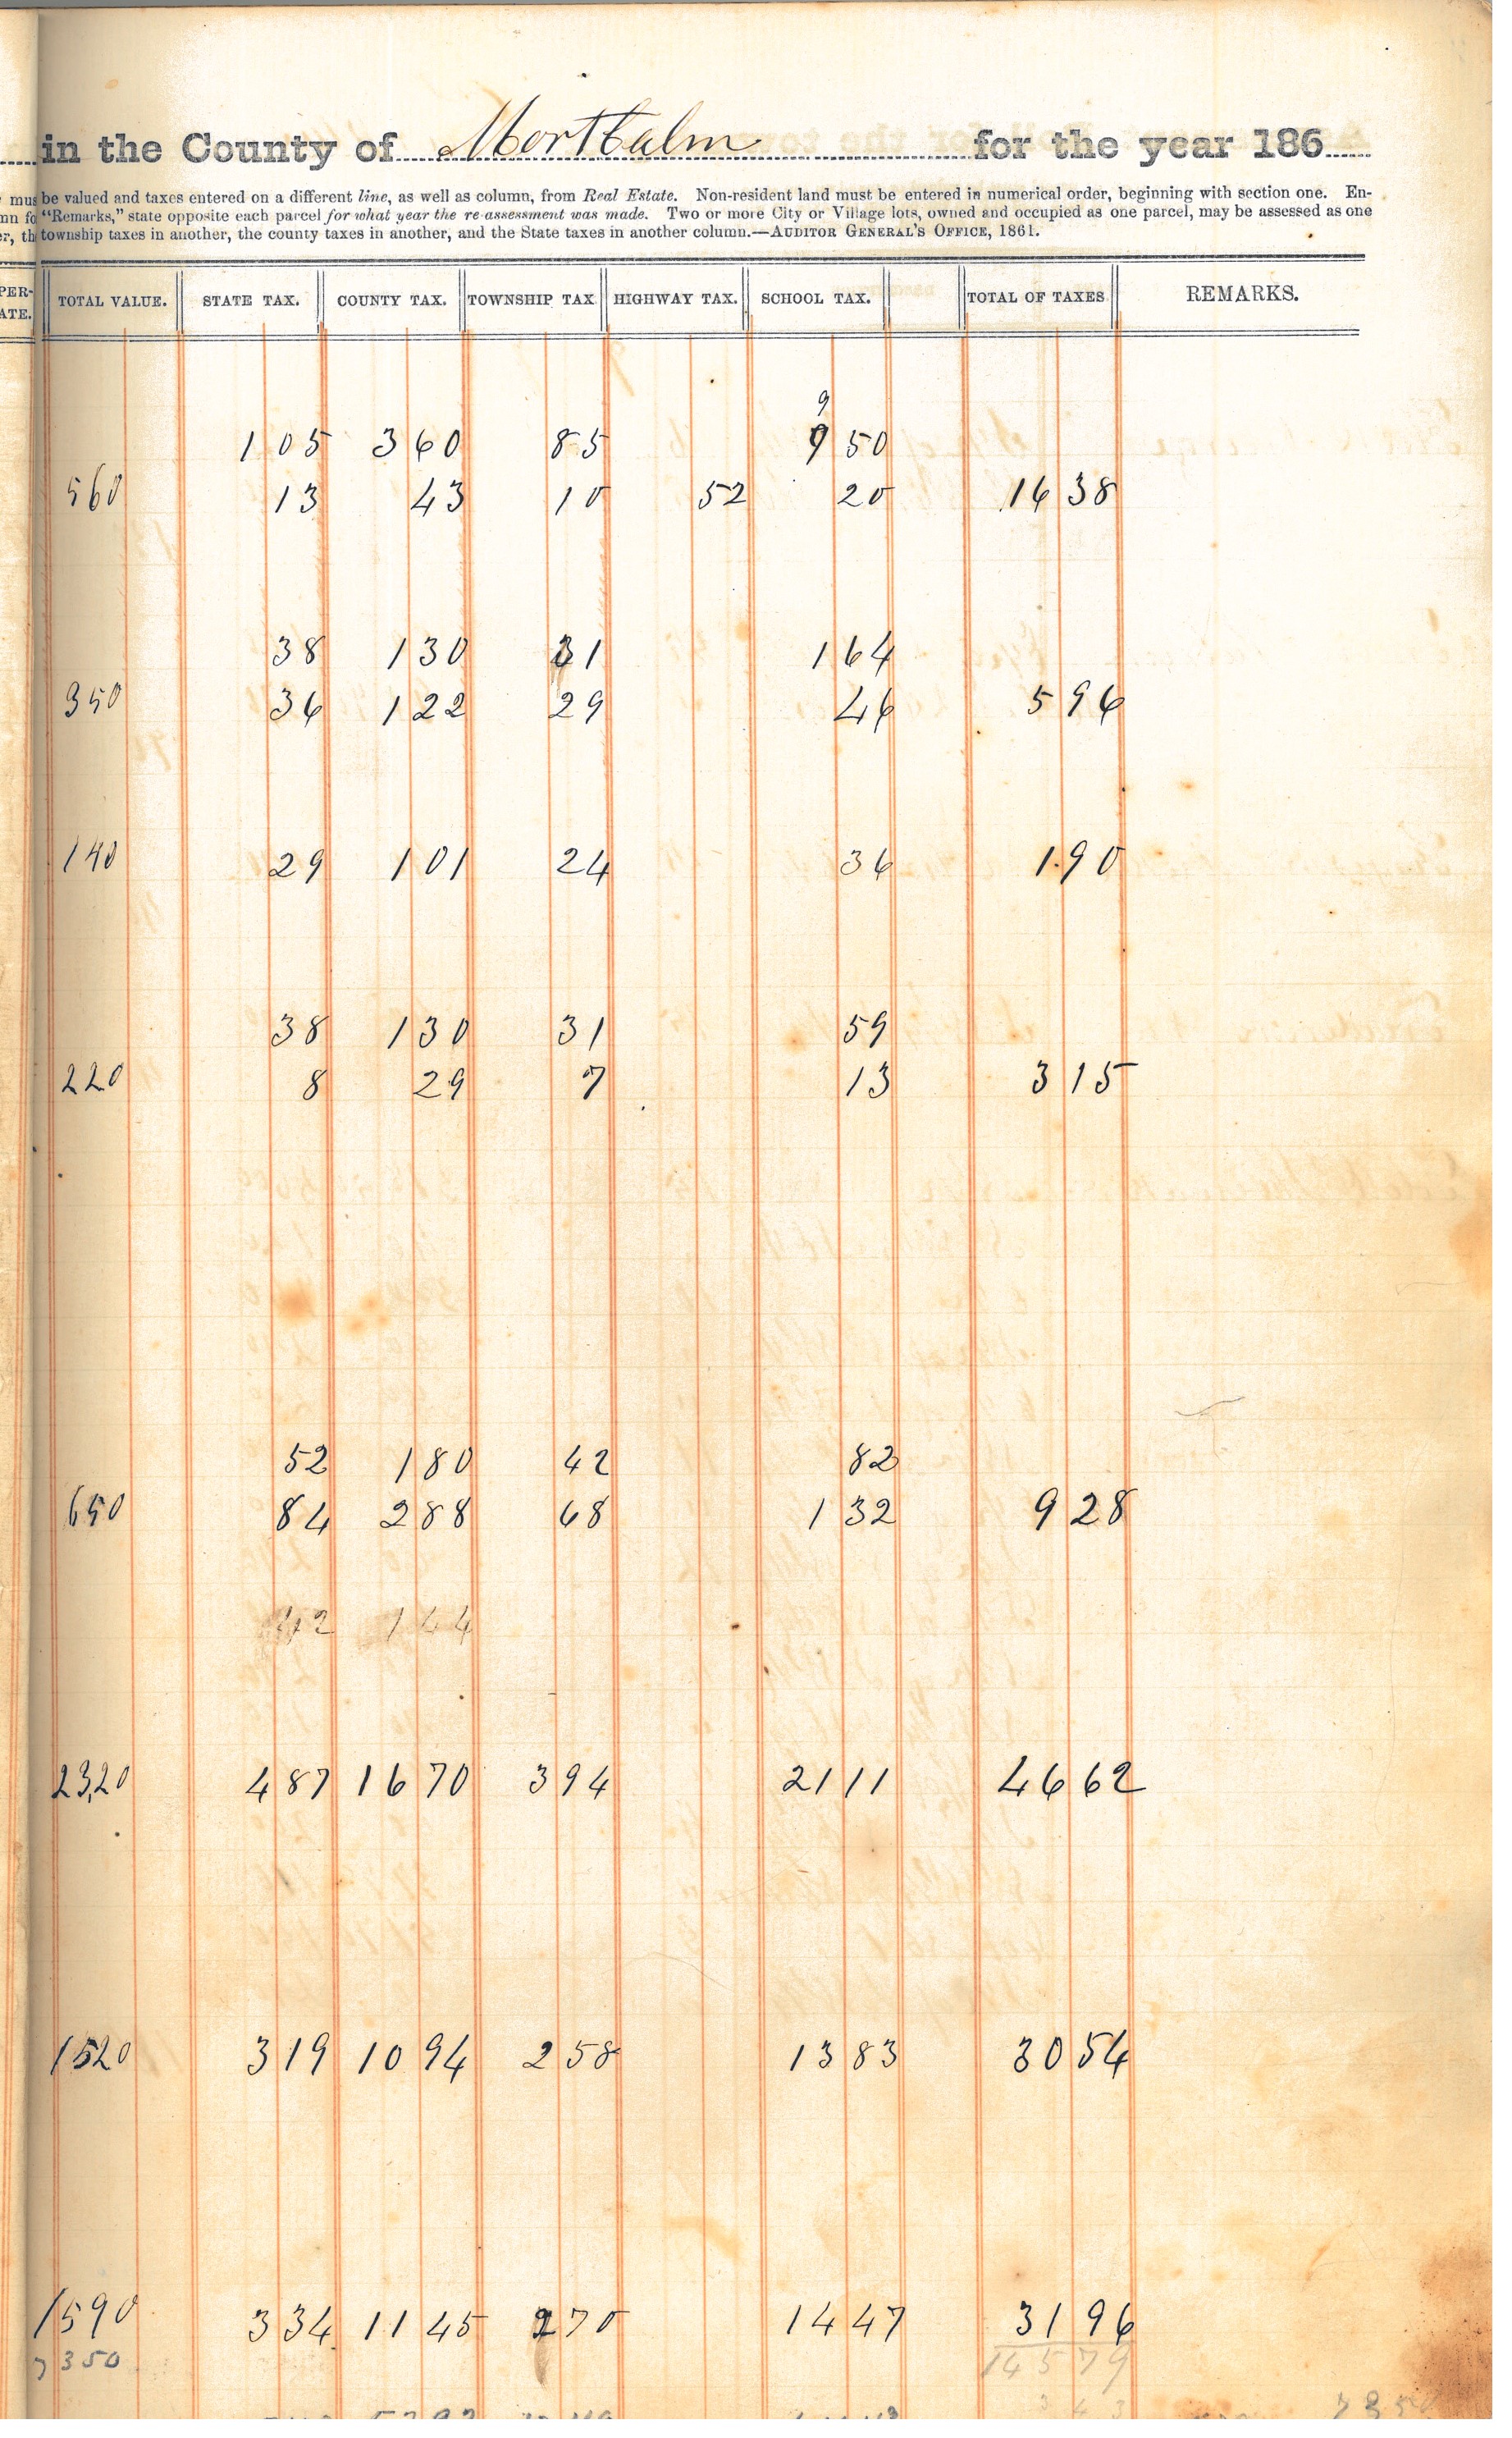 in the County of Montcalm for the year 186
mus be valued and taxes entered on a different line, as well as column, from Real Estate. Non-resident land must be entered in numerical order, beginning with section one. En-
nn fo "Remarks," state opposite each parcel for what year the re-assessment was made. Two or more City or Village lots, owned and occupied as one parcel, may be assessed as one
er, th township taxes in another, the county taxes in another, and the State taxes in another column.—AUDITOR GENERAL'S OFFICE, 1861.
PER-
ATE. TOTAL VALUE. STATE TAX. COUNTY TAX. TOWNSHIP TAX HIGHWAY TAX. SCHOOL TAX. TOTAL OF TAXES REMARKS.
9
1 05 3 60 85 9 50
560 13 43 10 52 20 16 38
38 1 30 31 1 64
350 36 1 22 29 46 5 96
140 29 1 01 24 36 1.90
38 1 30 31 59
220 8 29 7 13 3 15
52 1 80 42 82
650 84 2 88 68 1 32 9 28
42 1 44
2320 4 87 16 70 3 94 21 11 46 62
1520 3 19 10 94 2 58 13 83 30 54
1590 3 34 11 45 2 70 14 47 31 96
7350 145 79